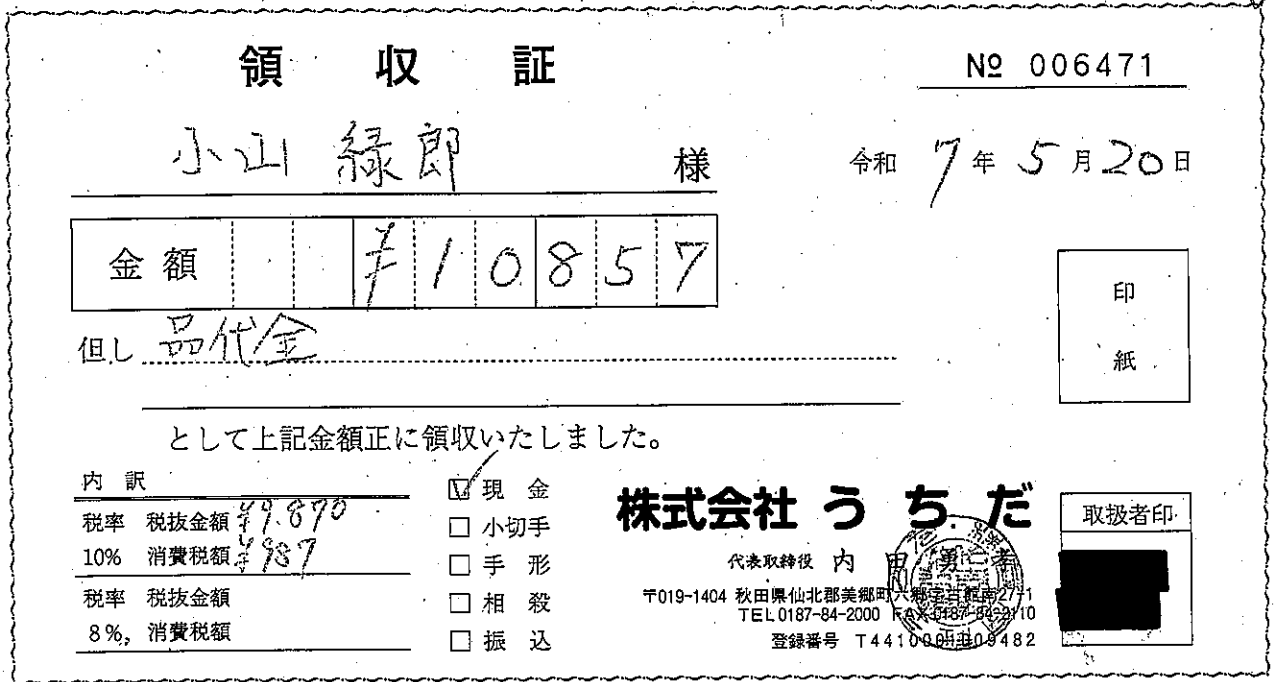 領収証
№ 006471
小山 緑郎 様
令和 7年 5月20日
金額 ¥10857
印紙
但し 品代金
として上記金額正に領収いたしました。
内訳
税率 税抜金額 ¥9.870
10% 消費税額 ¥987
税率 税抜金額
8%, 消費税額
☑ 現金
□ 小切手
□ 手形
□ 相殺
□ 振込
株式会社 うちだ
代表取締役 内田 勇孝
〒019-1404 秋田県仙北郡美郷町六郷字古館南27-1
TEL 0187-84-2000 FAX 0187-84-2110
登録番号 T4410001009482
取扱者印